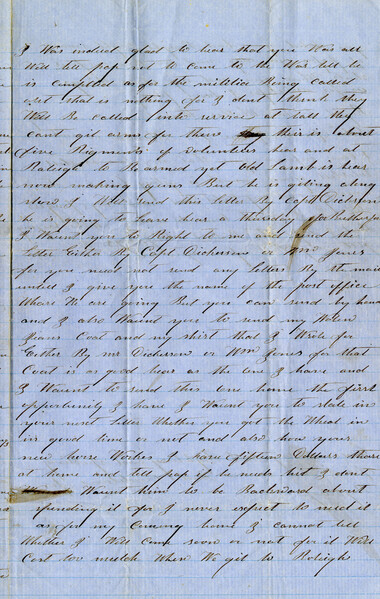 I Was indeed glad to hear that you Was all
Well tell pap not to Come to the War till he
is Compelled as for the militia Being Called
out that is nothing for I dont think they
Will Be Called into service at tall they
Cant git arms for theirs their is about
five Rigments of volenteers hear and at
Raleigh to Be armed yet Old Lamb is hear
now making guns But he is giting along
slow I Will send this Letter By Capt Dickerson
he is going to Leave hear a thursday for
I Waunt you to Right to me and send the
Letter Eather By Capt Dickerson or Wm Jones
for you need not send any Letter By the mail
untell I give you the name of the post office
Whare We are going But you can send by hand
and I also Waunt you to send my
Jeans Coat and my shirt that I Write for
Eather By mr Dickerson or Wm Jones for that
Coat is as good hear as the one I have and
I Waunt to send this one home the first
oppertunity I have I Waunt you to state in
your next Letter Whether you got the Wheat in
in good time or not and also how your
new horse Workes I have fifteen Dollars thare
at home and tell pap if he needs hit I dont
Waunt him to be Backward about
spending it for I never expect to need it
as for my Comeing home I cannot tell
Whether I Will Come soon or not for it Will
Cost too mutch When We git to Raleigh